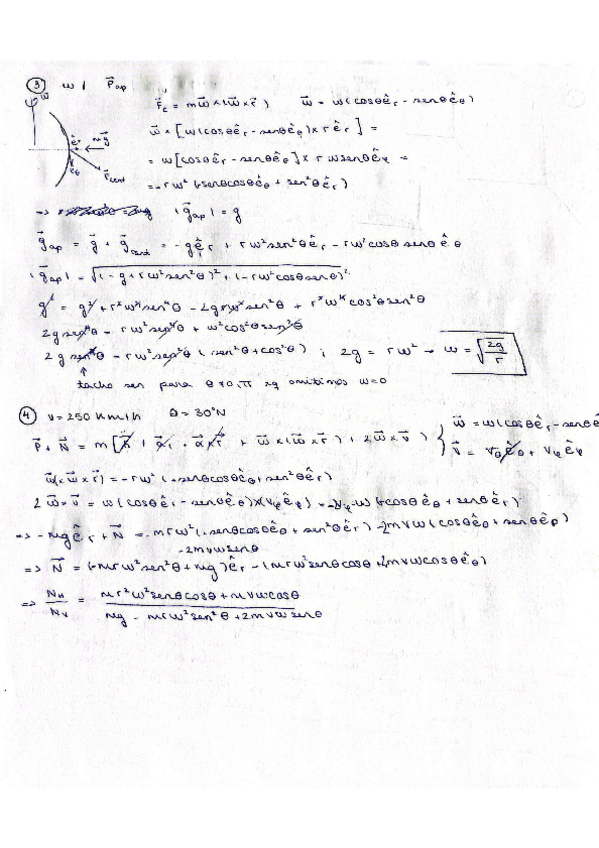 ③ w / P⃗ap
F⃗c = mw⃗×(w⃗×r⃗) w⃗ = w(cosθê_r - senθê_θ)
w⃗×[w(cosθê_r - senθê_θ)×rê_r] =
= w[cosθê_r - senθê_θ]×rwsenθê_φ =
= -rw²(senθcosθê_θ + sen²θê_r)
=> |g⃗ap| = g
g⃗ap = g⃗ + g⃗cent = -gê_r + rw²sen²θê_r - rw²cosθsenθê_θ
|g⃗ap| = √((-g + rw²sen²θ)² + (-rw²cosθsenθ)²
g² = g² + r²w⁴sen⁴θ - 2grw²sen²θ + r²w⁴cos²θsen²θ
2g sen²θ - rw²sen⁴θ + w²cos²θsen²θ
2g sen²θ - rw²sen²θ (sen²θ + cos²θ) ; 2g = rw² → w = √(2g/r)
↑
tacho sen para θ≠0,π xq omitimos w=0
④ v = 250 km/h θ = 30°N
P⃗ + N⃗ = m[ + w⃗×(w⃗×r⃗) + 2w⃗×v⃗ ) { w⃗ = w(cosθê_r - senθê
v⃗ = v_θê_θ + v_φê_φ
w⃗(×w⃗×r⃗) = -rw²(senθcosθê_θ + sen²θê_r)
2w⃗×v⃗ = w(cosθê_r - senθê_θ)×(v_φê_φ) = -v_φw(cosθê_θ + senθê_r)
=> -mgê_r + N⃗ = -mrw²(senθcosθê_θ + sen²θê_r) - 2mvw(cosθê_θ + senθê_r)
-2mvwsenθ
=> N⃗ = (-mrw²sen²θ + mg)ê_r - (mrw²senθcosθ + 2mvwcosθê_θ)
=> N_H/N_V = mr²w²senθcosθ + mvwcosθ / mg - mrw²sen²θ + 2mvwsenθ